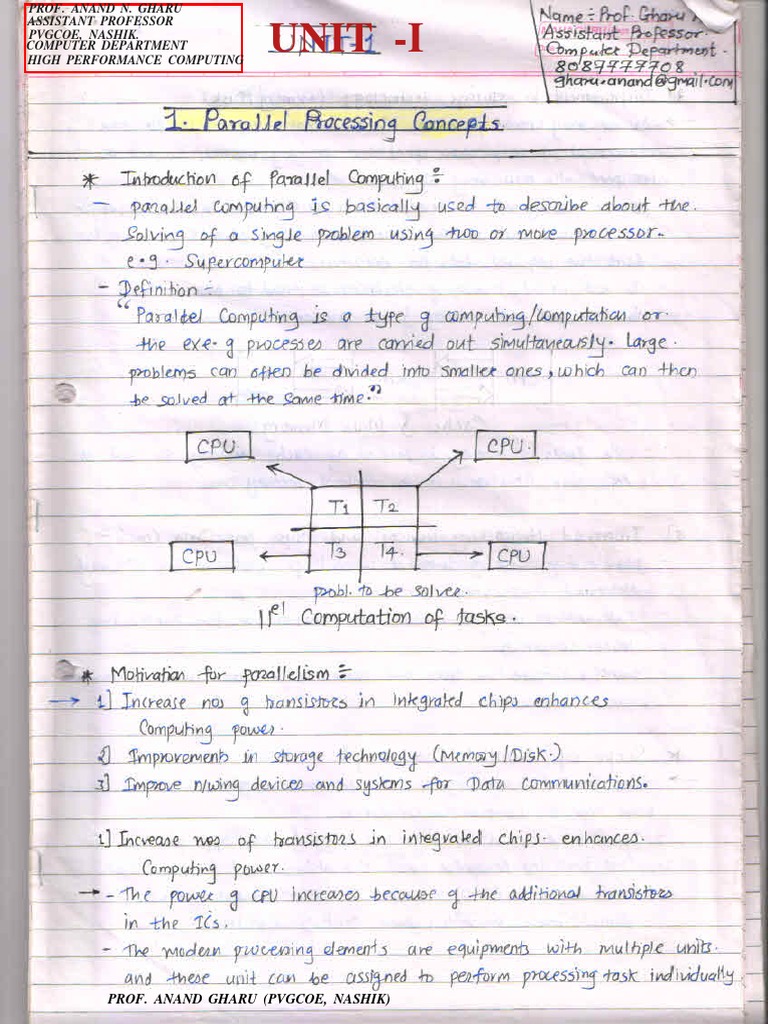 PROF. ANAND N. GHARU
ASSISTANT PROFESSOR
PVGCOE, NASHIK.
COMPUTER DEPARTMENT
HIGH PERFORMANCE COMPUTING
UNIT -I
Name:- Prof. Gharu
Assistant Professor.
Computer Department.
8087777708
gharu.anand@gmail.com
1. Parallel Processing Concepts
* Introduction of Parallel Computing :-
- parallel computing is basically used to describe about the
solving of a single problem using two or more processor.
e.g. Supercomputer
- Definition :-
"Parallel Computing is a type g computing/computation or
the exe. g processes are carried out simultaneously. Large
problems can often be divided into smaller ones, which can then
be solved at the same time."
CPU
CPU.
T1 T2
T3 T4.
CPU
CPU
probl. to be solvee.
||el Computation of tasks.
* Motivation for parallelism :-
→ 1] Increase nos g transistors in integrated chips enhances
Computing power.
2] Improvement in storage technology (Memory/Disk.)
3] Improve n/wing devices and systems for Data Communications.
1] Increase nos of transistors in integrated chips. enhances.
Computing power.
→ - The power g CPU increases because g the additional transistors
in the ICs.
- The modern processing elements are equipments with multiple units.
and these unit can be assigned to perform processing task individually
PROF. ANAND GHARU (PVGCOE, NASHIK)